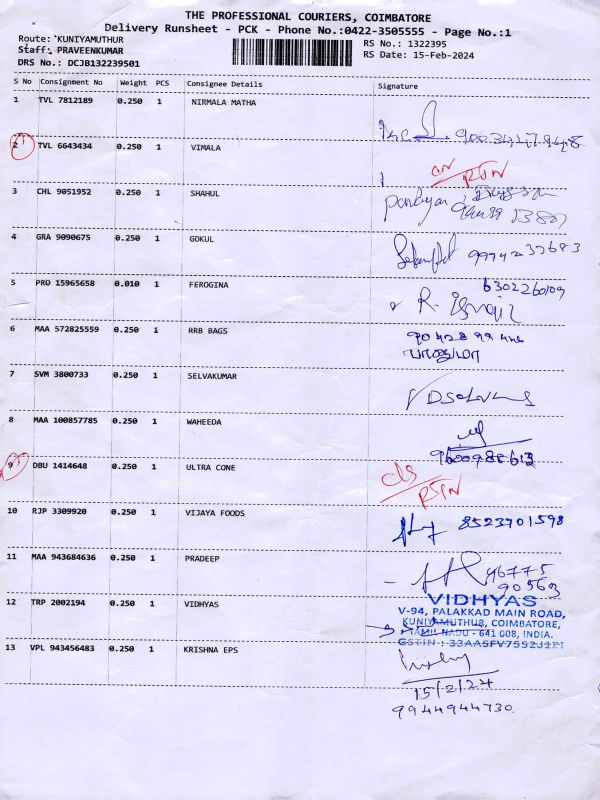 THE PROFESSIONAL COURIERS, COIMBATORE
Delivery Runsheet - PCK - Phone No.:0422-3505555 - Page No.:1
Route: KUNIYAMUTHUR
Staff: PRAVEENKUMAR
DRS No.: DCJB132239501
RS No.: 1322395
RS Date: 15-Feb-2024
S No Consignment No Weight PCS Consignee Details Signature
1 TVL 7812189 0.250 1 NIRMALA MATHA
2 TVL 6643434 0.250 1 VIMALA
RTN
3 CHL 9051952 0.250 1 SHAHUL
Pandiyan
4 GRA 9090675 0.250 1 GOKUL
5 PRO 15965658 0.010 1 FEROGINA
6302260109
R.
6 MAA 572825559 0.250 1 RRB BAGS
7 SVM 3800733 0.250 1 SELVAKUMAR
8 MAA 100857785 0.250 1 WAHEEDA
9 DBU 1414648 0.250 1 ULTRA CONE
RTN
10 RJP 3309920 0.250 1 VIJAYA FOODS
8523901598
11 MAA 943684636 0.250 1 PRADEEP
96775
90563
12 TRP 2002194 0.250 1 VIDHYAS
VIDHYAS
V-94, PALAKKAD MAIN ROAD,
KUNIYAMUTHUR, COIMBATORE,
TAMIL NADU - 641 008, INDIA.
GSTIN : 33AASFV7552J1ZI
13 VPL 943456483 0.250 1 KRISHNA EPS
15/2/24
9944944730